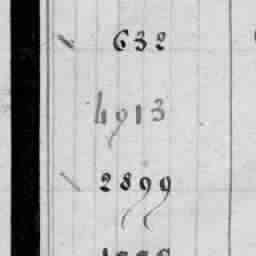 632
4913
2899